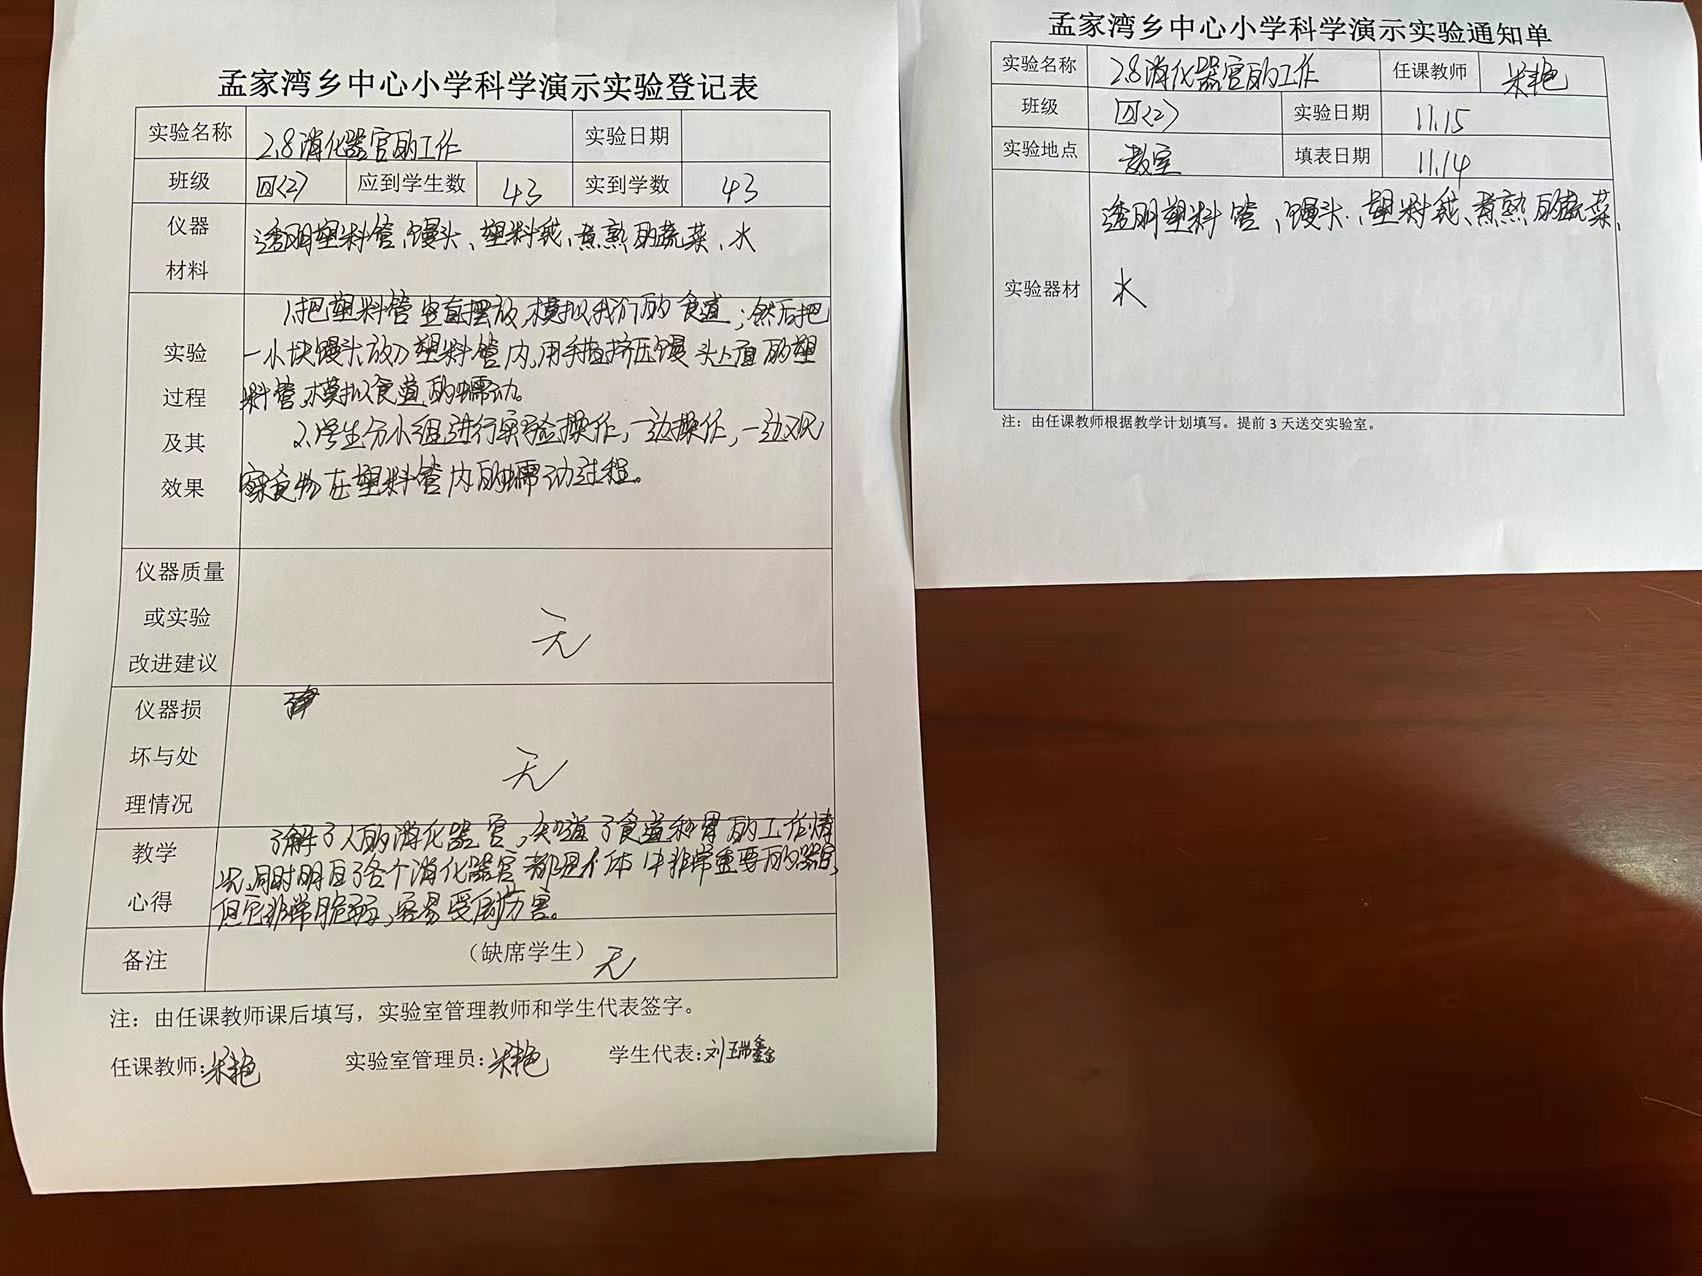 孟家湾乡中心小学科学演示实验登记表
实验名称 2.8消化器官的工作 实验日期
班级 四(2) 应到学生数 43 实到学数 43
仪器材料 透明塑料管、馒头、塑料袋、煮熟的蔬菜、水
实验过程及其效果
1.把塑料管竖直摆放,模拟我们的食道;然后把
一小块馒头放入塑料管内,用手挤压馒头上面的塑
料管,模拟食道的蠕动。
2.学生分小组进行实验操作,一边操作,一边观
察食物在塑料管内的蠕动过程。
仪器质量或实验改进建议 无
仪器损坏与处理情况 无
教学心得
了解了人的消化器官,知道了食道和胃的工作情
况,同时明白了各个消化器官都是人体中非常重要的器官,
但它非常脆弱,容易受到伤害。
备注 (缺席学生) 无
注:由任课教师课后填写,实验室管理教师和学生代表签字。
任课教师: 实验室管理员: 学生代表:刘瑞鑫
孟家湾乡中心小学科学演示实验通知单
实验名称 2.8消化器官的工作 任课教师
班级 四(2) 实验日期 11.15
实验地点 教室 填表日期 11.14
实验器材
透明塑料管、馒头、塑料袋、煮熟的蔬菜、
水
注:由任课教师根据教学计划填写。提前3天送交实验室。